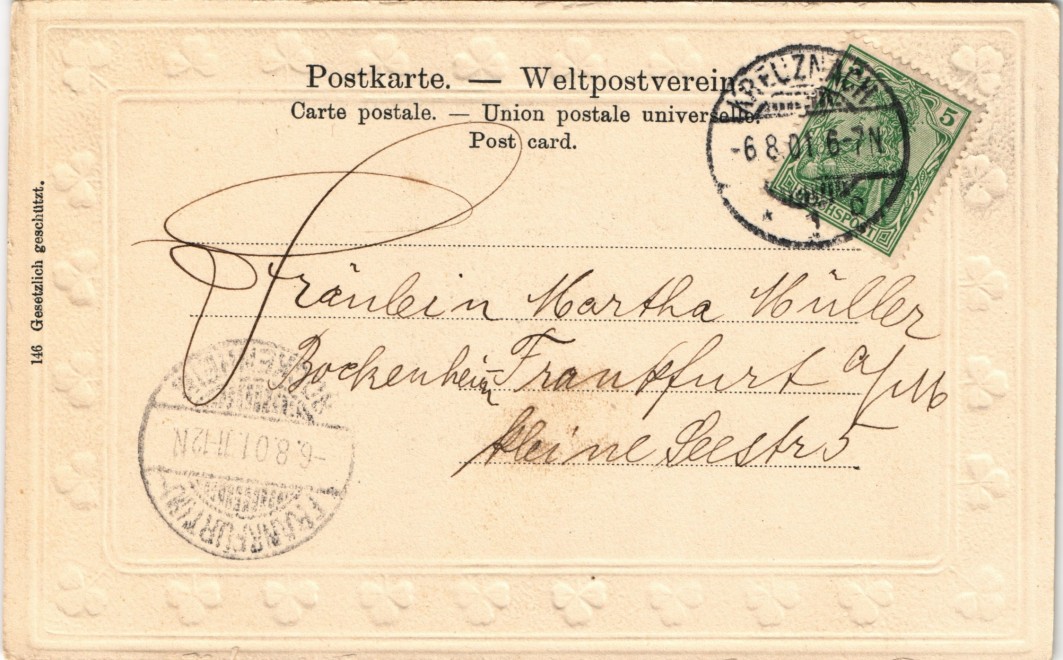 Postkarte. — Weltpostverein
Carte postale. — Union postale universelle.
Post card.
KREUZNACH
-6.8.01. 6-7N
* 1
5
REICHSPOST
146 Gesetzlich geschützt.
Fräulein Martha Müller
Bockenheim-Frankfurt a/M
kleine Seestr 5
-6.8.01.11-12N
FRANKFURT